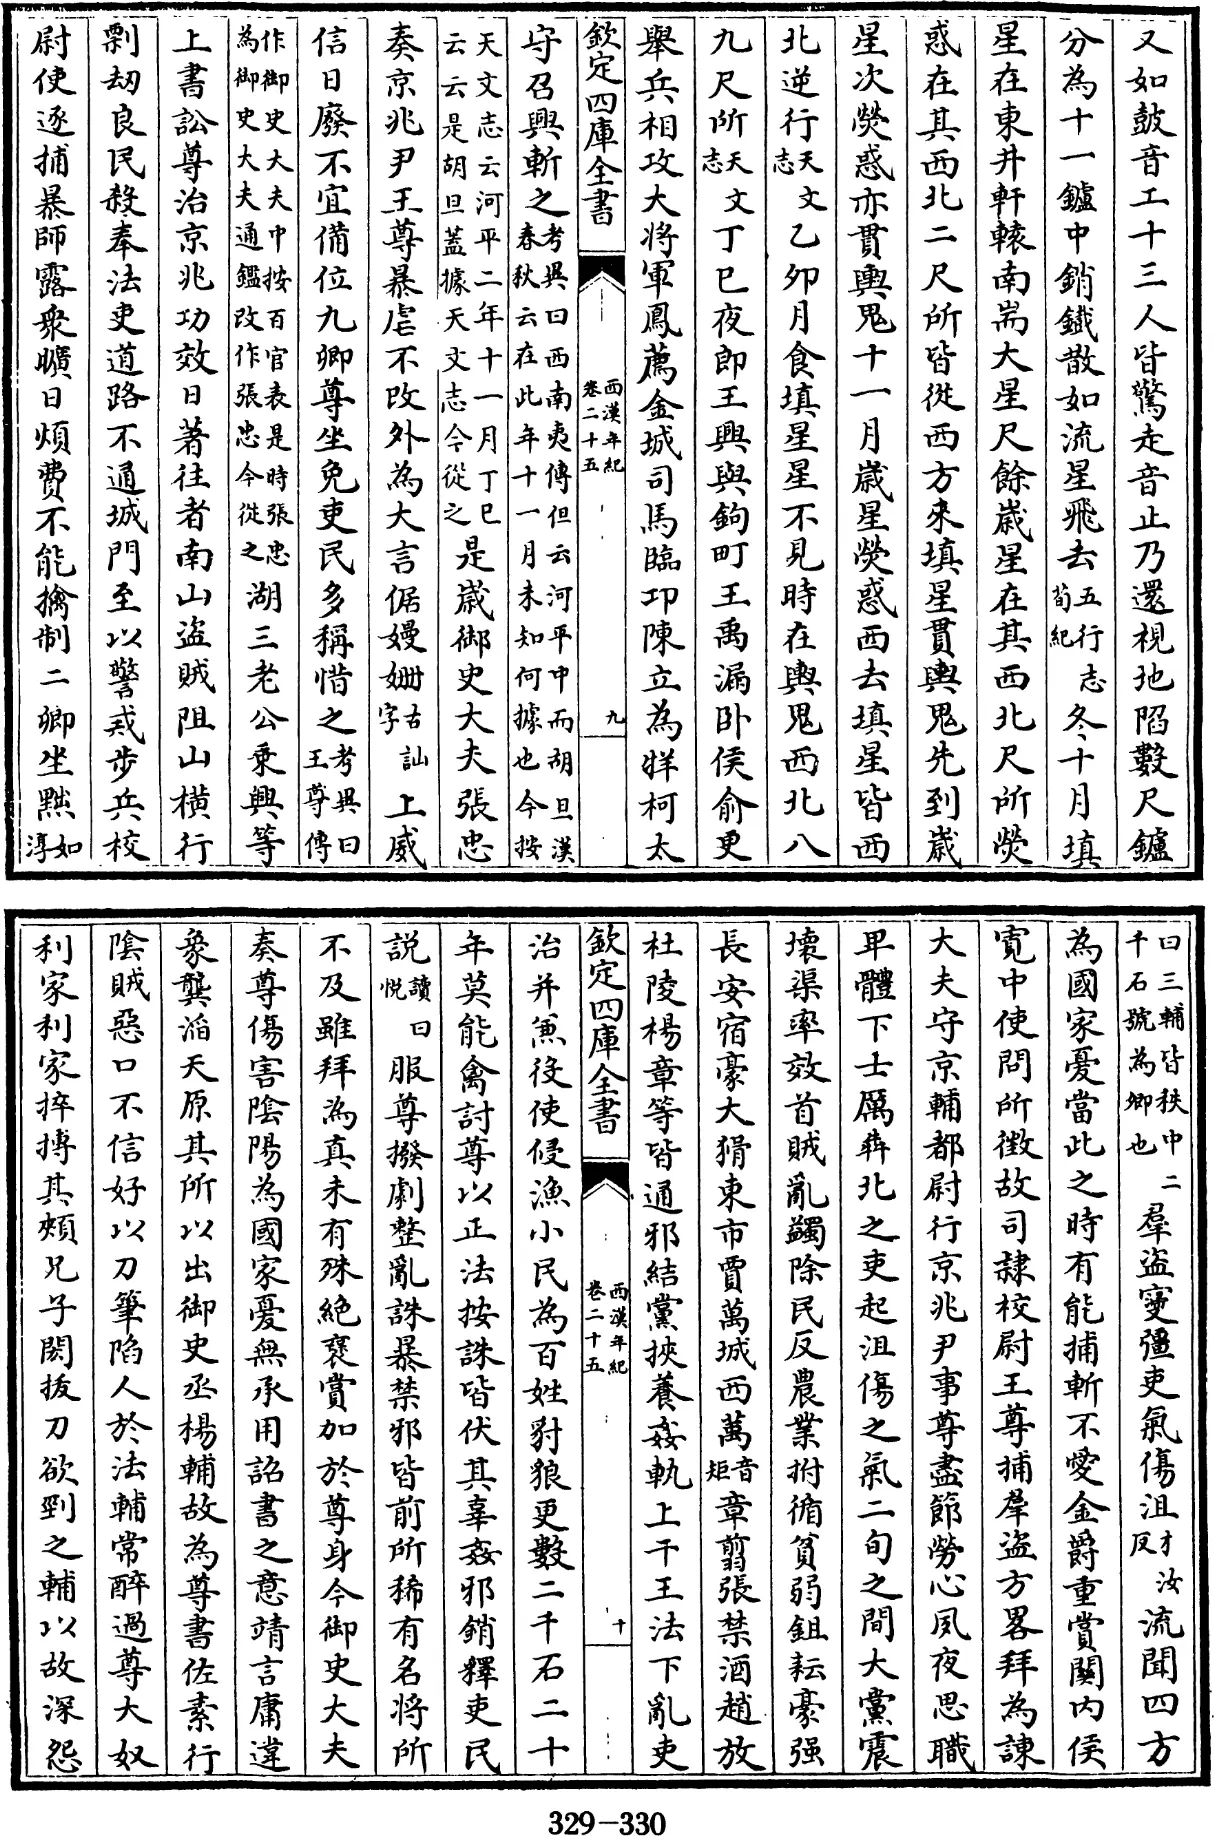 又如鼓音工十三人皆驚走音止乃還視地陷數尺鑪
分為十一鑪中銷鐵散如流星飛去五行志荀紀冬十月填
星在東井軒轅南耑大星尺餘歲星在其西北尺所熒
惑在其西北二尺所皆從西方來填星貫輿鬼先到歲
星次熒惑亦貫輿鬼十一月歲星熒惑西去填星皆西
北逆行天文志乙卯月食填星星不見時在輿鬼西北八
九尺所天文志丁巳夜郎王興與鉤町王禹漏卧侯俞更
舉兵相攻大將軍鳳薦金城司馬臨卭陳立為牂柯太
欽定四庫全書 西漢年紀卷二十五 九
守召興斬之考異曰西南夷傳但云河平中而胡旦漢春秋云在此年十一月未知何據也今按
天文志云河平二年十一月丁巳云云是胡旦蓋據天文志今從之是歲御史大夫張忠
奏京兆尹王尊暴虐不改外為大言倨嫚姍古訕字上威
信日廢不宜備位九卿尊坐免吏民多稱惜之考異曰王尊傳
作御史大夫中按百官表是時張忠為御史大夫通鑑改作張忠今從之湖三老公乘興等
上書訟尊治京兆功效日著往者南山盜賊阻山橫行
剽刼良民殺奉法吏道路不通城門至以警戒步兵校
尉使逐捕暴師露衆曠日煩費不能擒制二卿坐黜如淳
曰三輔皆秩中二千石號為卿也羣盜寖彊吏氣傷沮才汝反流聞四方
為國家憂當此之時有能捕斬不愛金爵重賞關内侯
寛中使問所徴故司隸校尉王尊捕羣盜方畧拜為諫
大夫守京輔都尉行京兆尹事尊盡節勞心夙夜思職
卑體下士厲犇北之吏起沮傷之氣二旬之間大黨震
壞渠率效首賊亂蠲除民反農業拊循貧弱鉏耘豪强
長安宿豪大猾東市賈萬城西萬音矩章翦張禁酒趙放
杜陵楊章等皆通邪結黨挾養姦軌上干王法下亂吏
欽定四庫全書 西漢年紀卷二十五 十
治并兼役使侵漁小民為百姓豺狼更數二千石二十
年莫能禽討尊以正法按誅皆伏其辜姦邪銷釋吏民
説讀曰悅服尊撥劇整亂誅暴禁邪皆前所稀有名將所
不及雖拜為真未有殊絶襃賞加於尊身今御史大夫
奏尊傷害陰陽為國家憂無承用詔書之意靖言庸違
象龔滔天原其所以出御史丞楊輔故為尊書佐素行
陰賊惡口不信好以刀筆陷人於法輔常醉過尊大奴
利家利家捽搏其頰兄子閎拔刀欲剄之輔以故深怨
329-330